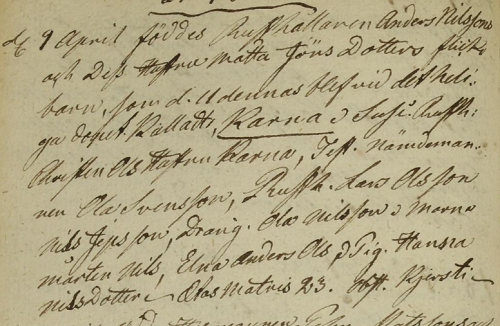 d. 9 April föddes Russhållaren Anders Nilssons
och Dess Hustru Matta Jöns Dotters flicke
barn, som d. 11 dennas blef vid det heli-
ga dopet Kalladt, Karna Susc. Russh:
Christen Ols Hustru Karna, Test. Nämdeman-
nen Ola Svensson, Russh. Lars Olsson
Nils Jepsson, Dräng. Ola Nilsson Marna
Mårten Nils, Elna Anders Ols Pig. Hanna
Nils Dotter Ætas Matris 23. Kjersti